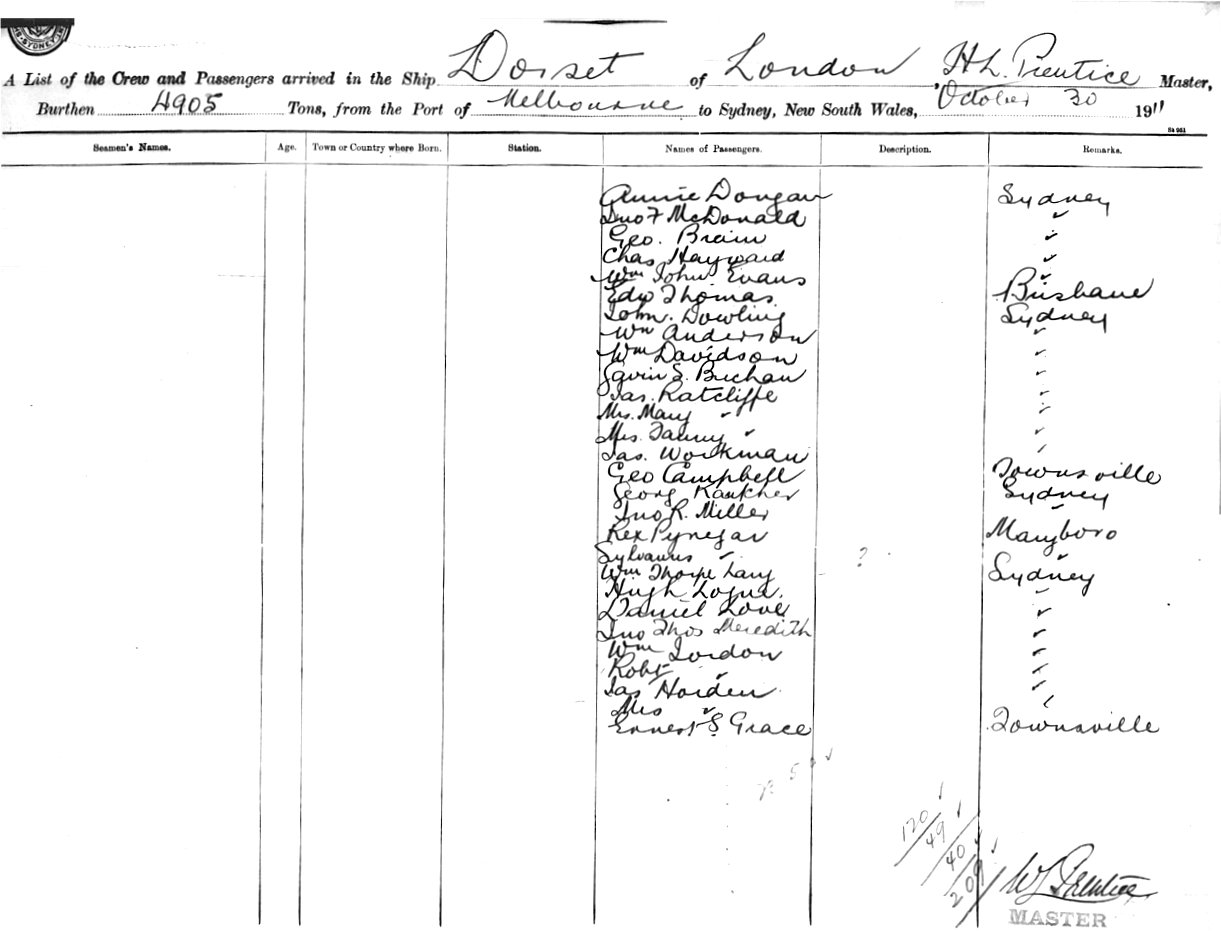 SYDNEY
A List of the Crew and Passengers arrived in the Ship Dorset of London, H L. Prentice Master,
Burthen 4905 Tons, from the Port of Melbourne to Sydney, New South Wales, October 30 1911
Sz 961
Seamen's Names. Age. Town or Country where Born. Station. Names of Passengers. Description. Remarks.
Annie Dongan Sydney
Jno F McDonald ✓
Geo. Brain ✓
Chas Hayward ✓
Wm John Evans ✓
Edw Thomas. Brisbane
John. Dowling Sydney
Wm Anderson ✓
Wm Davidson ✓
Gavin S. Buchan ✓
Jas. Ratcliffe ✓
Mrs. Mary ✓ ✓
Mrs. Fanny ✓ ✓
Jas. Workman ✓
Geo Campbell Townsville
Georg Sydney
Jno R. Miller ✓
Rex Pynegar Maryboro
Sylvanus ✓ ? ✓
Wm Thorpe Sydney
Hugh Logue. ✓
Daniel Love ✓
Jno Thos Meredith ✓
Wm Jordon ✓
Robt ✓ ✓
Jas Horden ✓
Mrs ✓ ✓
Ernest S. Grace Townsville
120 ✓
49 ✓
40 ✓
209 ✓
Prentice
MASTER